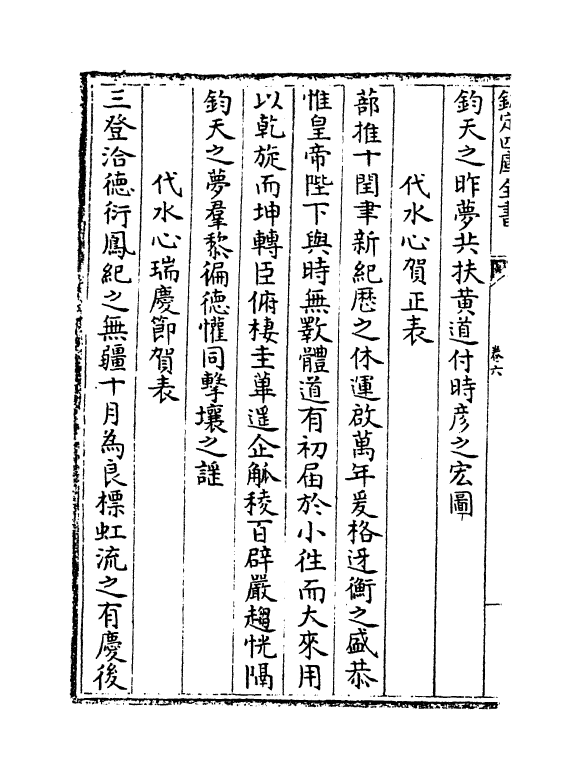 欽定四庫全書
卷六
鈞天之昨夢共扶黄道付時彦之宏圖
代水心賀正表
蔀推十閏聿新紀歴之休運啟萬年爰格迓衡之盛恭
惟皇帝陛下與時無斁體道有初届於小徃而大來用
以乾旋而坤轉臣俯棲圭蓽遥企觚稜百辟嚴趨恍隔
鈞天之夢羣黎徧德懽同擊壤之謡
代水心瑞慶節賀表
三登洽德衍鳳紀之無疆十月為良標虹流之有慶後